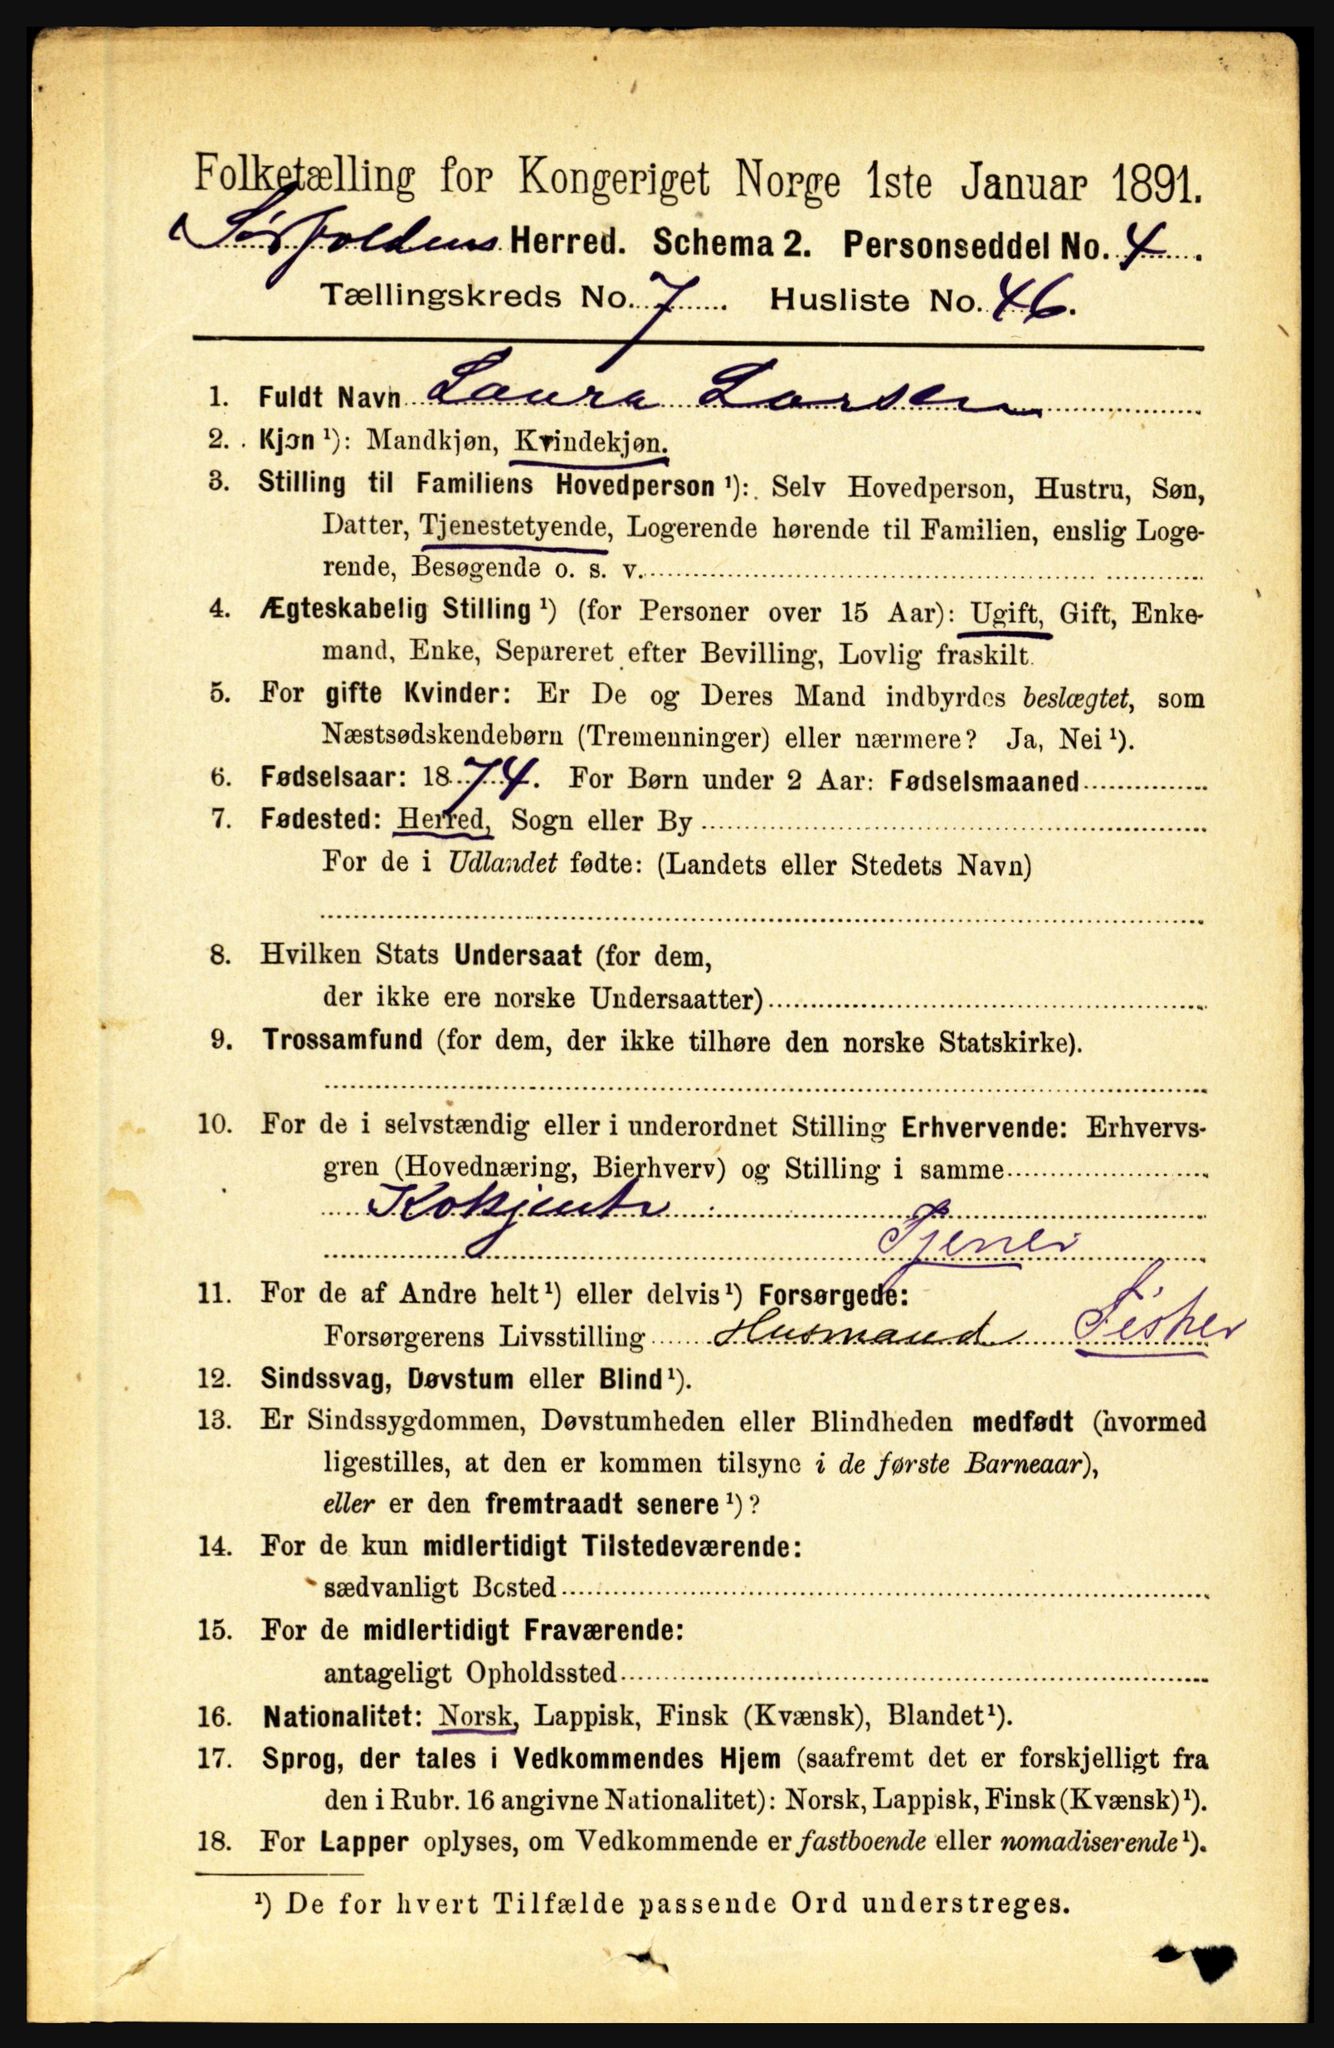 Folketælling for Kongeriget Norge 1ste Januar 1891.
Sørfoldens Herred. Schema 2. Personseddel No. 4.
Tællingskreds No. 7. Husliste No. 46.
1. Fuldt Navn Laura Larsen
2. Kjøn ¹): Mandkjøn, Kvindekjøn.
3. Stilling til Familiens Hovedperson ¹): Selv Hovedperson, Hustru, Søn,
Datter, Tjenestetyende, Logerende hørende til Familien, enslig Loge-
rende, Besøgende o. s. v.
4. Ægteskabelig Stilling ¹) (for Personer over 15 Aar): Ugift, Gift, Enke-
mand, Enke, Separeret efter Bevilling, Lovlig fraskilt.
5. For gifte Kvinder: Er De og Deres Mand indbyrdes beslægtet, som
Næstsødskendebørn (Tremenninger) eller nærmere? Ja, Nei ¹).
6. Fødselsaar: 1874. For Børn under 2 Aar: Fødselsmaaned
7. Fødested: Herred, Sogn eller By
For de i Udlandet fødte: (Landets eller Stedets Navn)
8. Hvilken Stats Undersaat (for dem,
der ikke ere norske Undersaatter)
9. Trossamfund (for dem, der ikke tilhøre den norske Statskirke).
10. For de i selvstændig eller i underordnet Stilling Erhvervende: Erhvervs-
gren (Hovednæring, Bierhverv) og Stilling i samme
Kokjente
Tjener
11. For de af Andre helt ¹) eller delvis ¹) Forsørgede:
Forsørgerens Livsstilling Husmand Fisker
12. Sindssvag, Døvstum eller Blind ¹).
13. Er Sindssygdommen, Døvstumheden eller Blindheden medfødt (hvormed
ligestilles, at den er kommen tilsyne i de første Barneaar),
eller er den fremtraadt senere ¹)?
14. For de kun midlertidigt Tilstedeværende:
sædvanligt Bosted
15. For de midlertidigt Fraværende:
antageligt Opholdssted
16. Nationalitet: Norsk, Lappisk, Finsk (Kvænsk), Blandet ¹).
17. Sprog, der tales i Vedkommendes Hjem (saafremt det er forskjelligt fra
den i Rubr. 16 angivne Nationalitet): Norsk, Lappisk, Finsk (Kvænsk) ¹).
18. For Lapper oplyses, om Vedkommende er fastboende eller nomadiserende ¹).
¹) De for hvert Tilfælde passende Ord understreges.